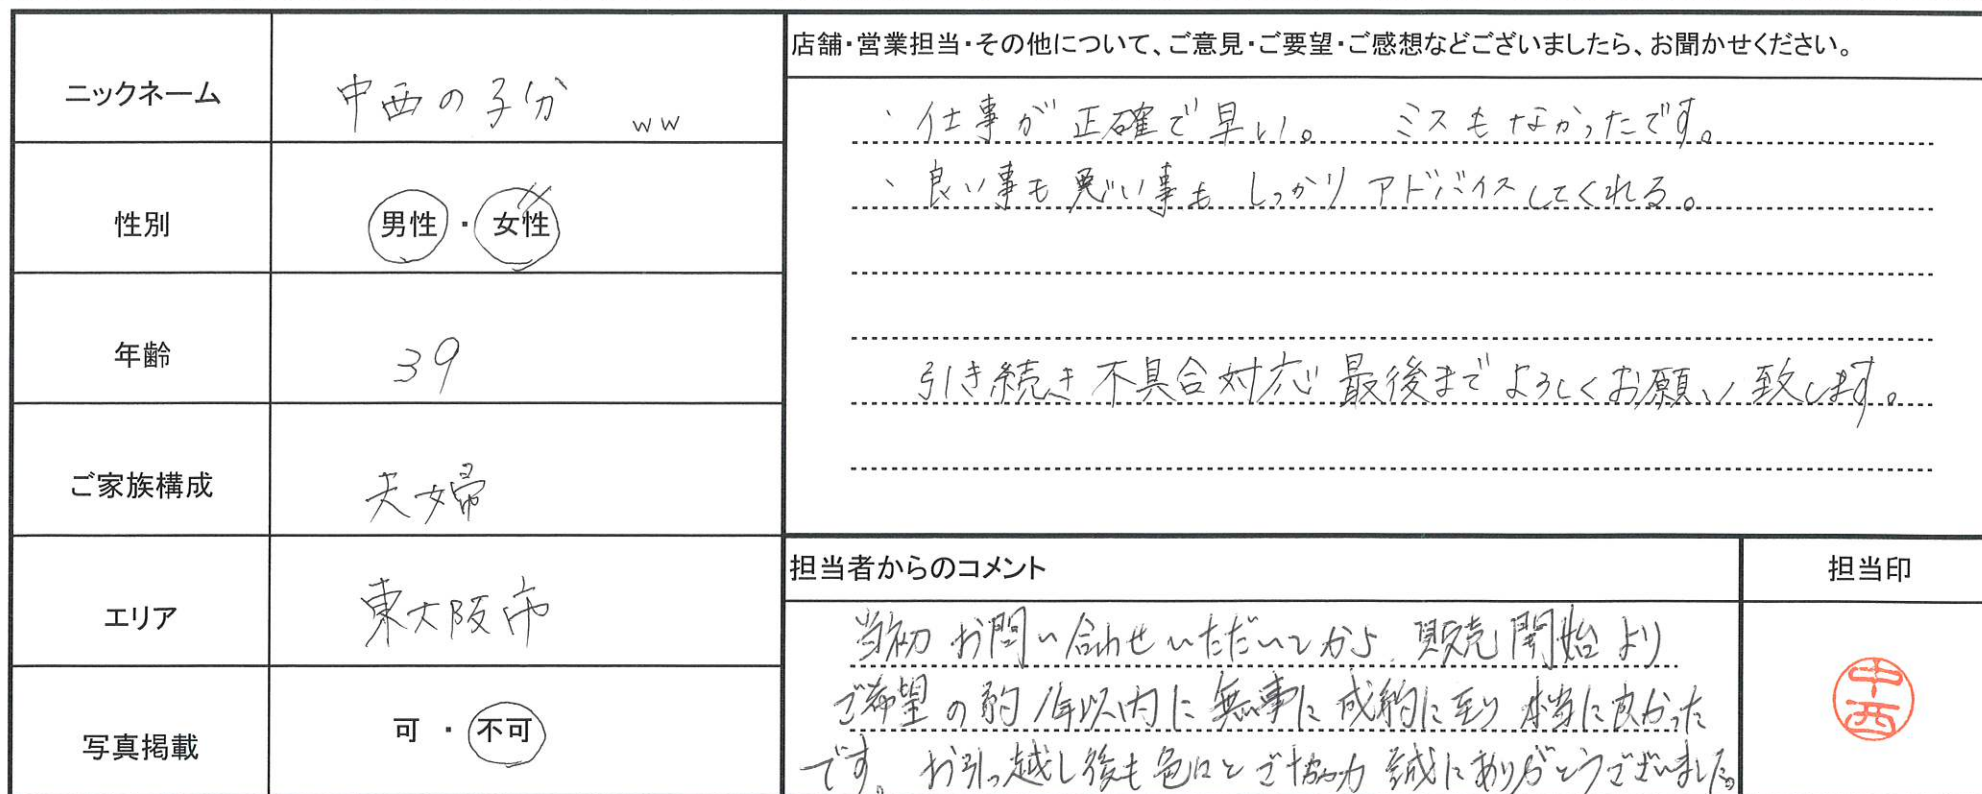 ニックネーム
中西の子分 ww
性別
男性・女性
年齢
39
ご家族構成
夫婦
エリア
東大阪市
写真掲載
可・不可
店舗・営業担当・その他について、ご意見・ご要望・ご感想などございましたら、お聞かせください。
・仕事が正確で早い。 ミスもなかったです。
・良い事も悪い事もしっかりアドバイスしてくれる。
引き続き不具合対応最後までよろしくお願い致します。
担当者からのコメント
当初お問い合わせいただいてから、販売開始より
ご希望の約1年以内に無事に成約に至り本当に良かった
です。お引っ越し後も色々とご協力誠にありがとうございました。
担当印
中西